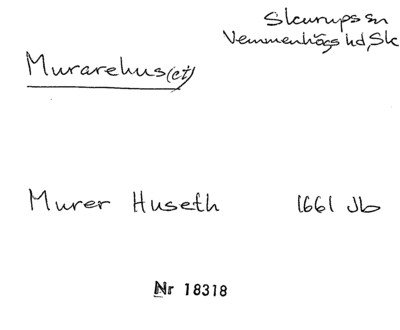 Skurups sn
Vemmenhögs hd, Sk
Murarehus(et)
Murer Huseth 1661 Jb
Nr 18318